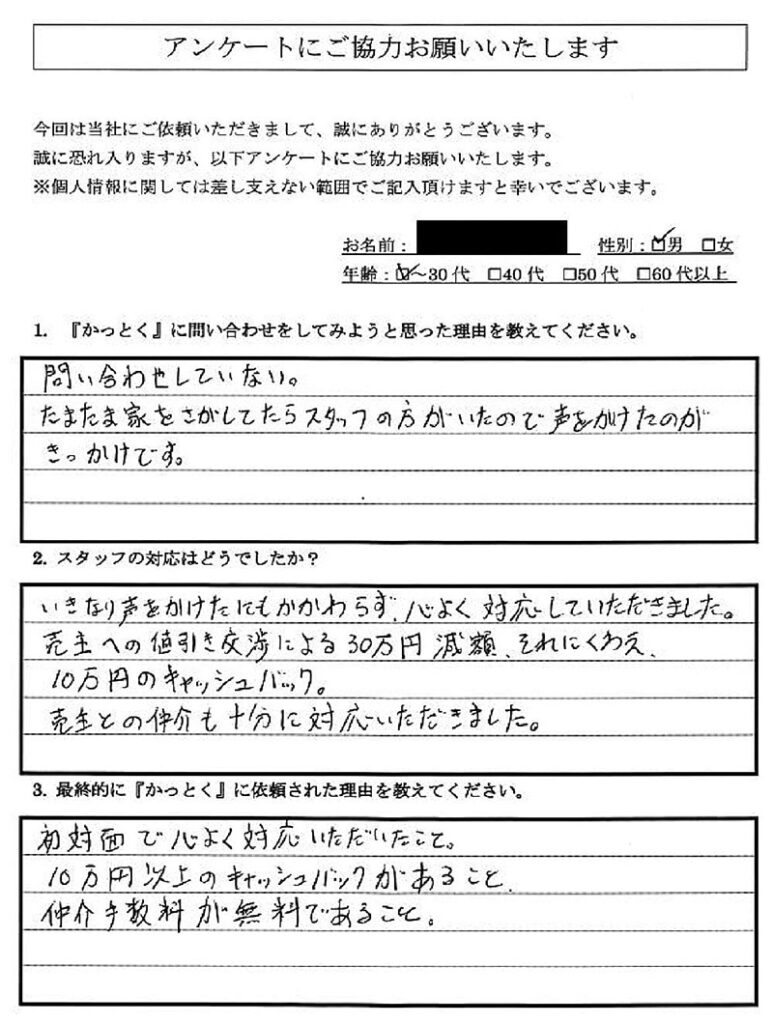 アンケートにご協力お願いいたします
今回は当社にご依頼いただきまして、誠にありがとうございます。
誠に恐れ入りますが、以下アンケートにご協力お願いいたします。
※個人情報に関しては差し支えない範囲でご記入頂けますと幸いでございます。
お名前： 性別：☑男 □女
年齢：☑～30代 □40代 □50代 □60代以上
1. 『かっとく』に問い合わせをしてみようと思った理由を教えてください。
問い合わせしていない。
たまたま家をさがしてたらスタッフの方がいたので声をかけたのが
きっかけです。
2. スタッフの対応はどうでしたか？
いきなり声をかけたにもかかわらず、心よく対応していただきました。
売主への値引き交渉による30万円減額、それにくわえ、
10万円のキャッシュバック。
売主との仲介も十分に対応いただきました。
3. 最終的に『かっとく』に依頼された理由を教えてください。
初対面で心よく対応いただいたこと。
10万円以上のキャッシュバックがあること、
仲介手数料が無料であること。